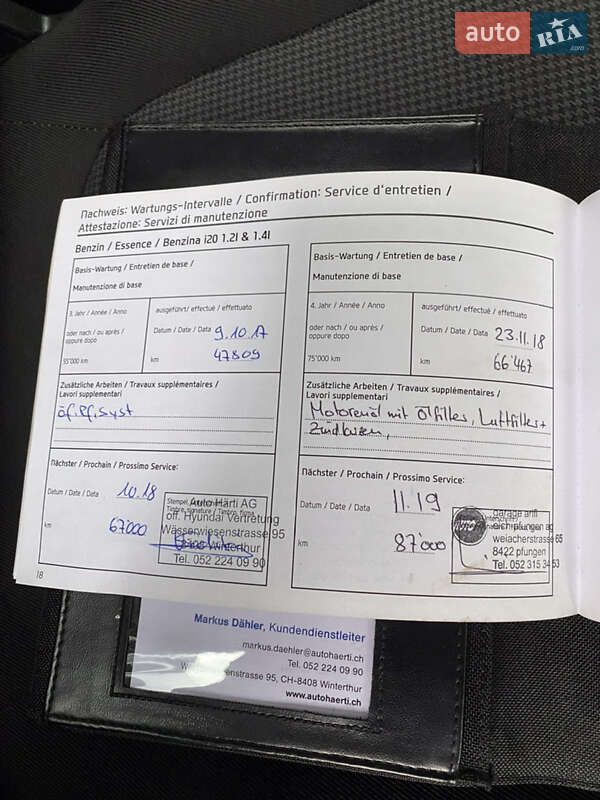 auto RIA .com
Nachweis: Wartungs-Intervalle / Confirmation: Service d'entretien /
Attestazione: Servizi di manutenzione
Benzin / Essence / Benzina i20 1.2l & 1.4l
Basis-Wartung / Entretien de base /
Manutenzione di base
3. Jahr / Année / Anno
oder nach / ou après /
oppure dopo
55'000 km
ausgeführt / effectué / effettuato
Datum / Date / Data 9.10.17
km 47809
Zusätzliche Arbeiten / Travaux supplémentaires /
Lavori supplementari
öf. Pf. Syst
Nächster / Prochain / Prossimo Service:
Datum / Date / Data 10.18
km 67000
Auto Härti AG
off. Hyundai Vertretung
Wässerwiesenstrasse 95
Winterthur
Tel. 052 224 09 90
18
Basis-Wartung / Entretien de base /
Manutenzione di base
4. Jahr / Année / Anno
oder nach / ou après /
oppure dopo
75'000 km
ausgeführt/ effectué / effettuato
Datum / Date / Data 23.11.18
km 66'467
Zusätzliche Arbeiten / Travaux supplémentaires /
Lavori supplementari
Motorenöl mit Ölfilter, Luftfilter +
Zündkerzen,
Nächster / Prochain / Prossimo Service:
Datum / Date / Data 11.19
km 87'000
garage
pfungen ag
weiacherstrasse 65
8422 pfungen
Tel. 052 315 34 53
Markus Dähler, Kundendienstleiter
markus.daehler@autohaerti.ch
Tel. 052 224 09 90
95, CH-8408 Winterthur
www.autohaerti.ch